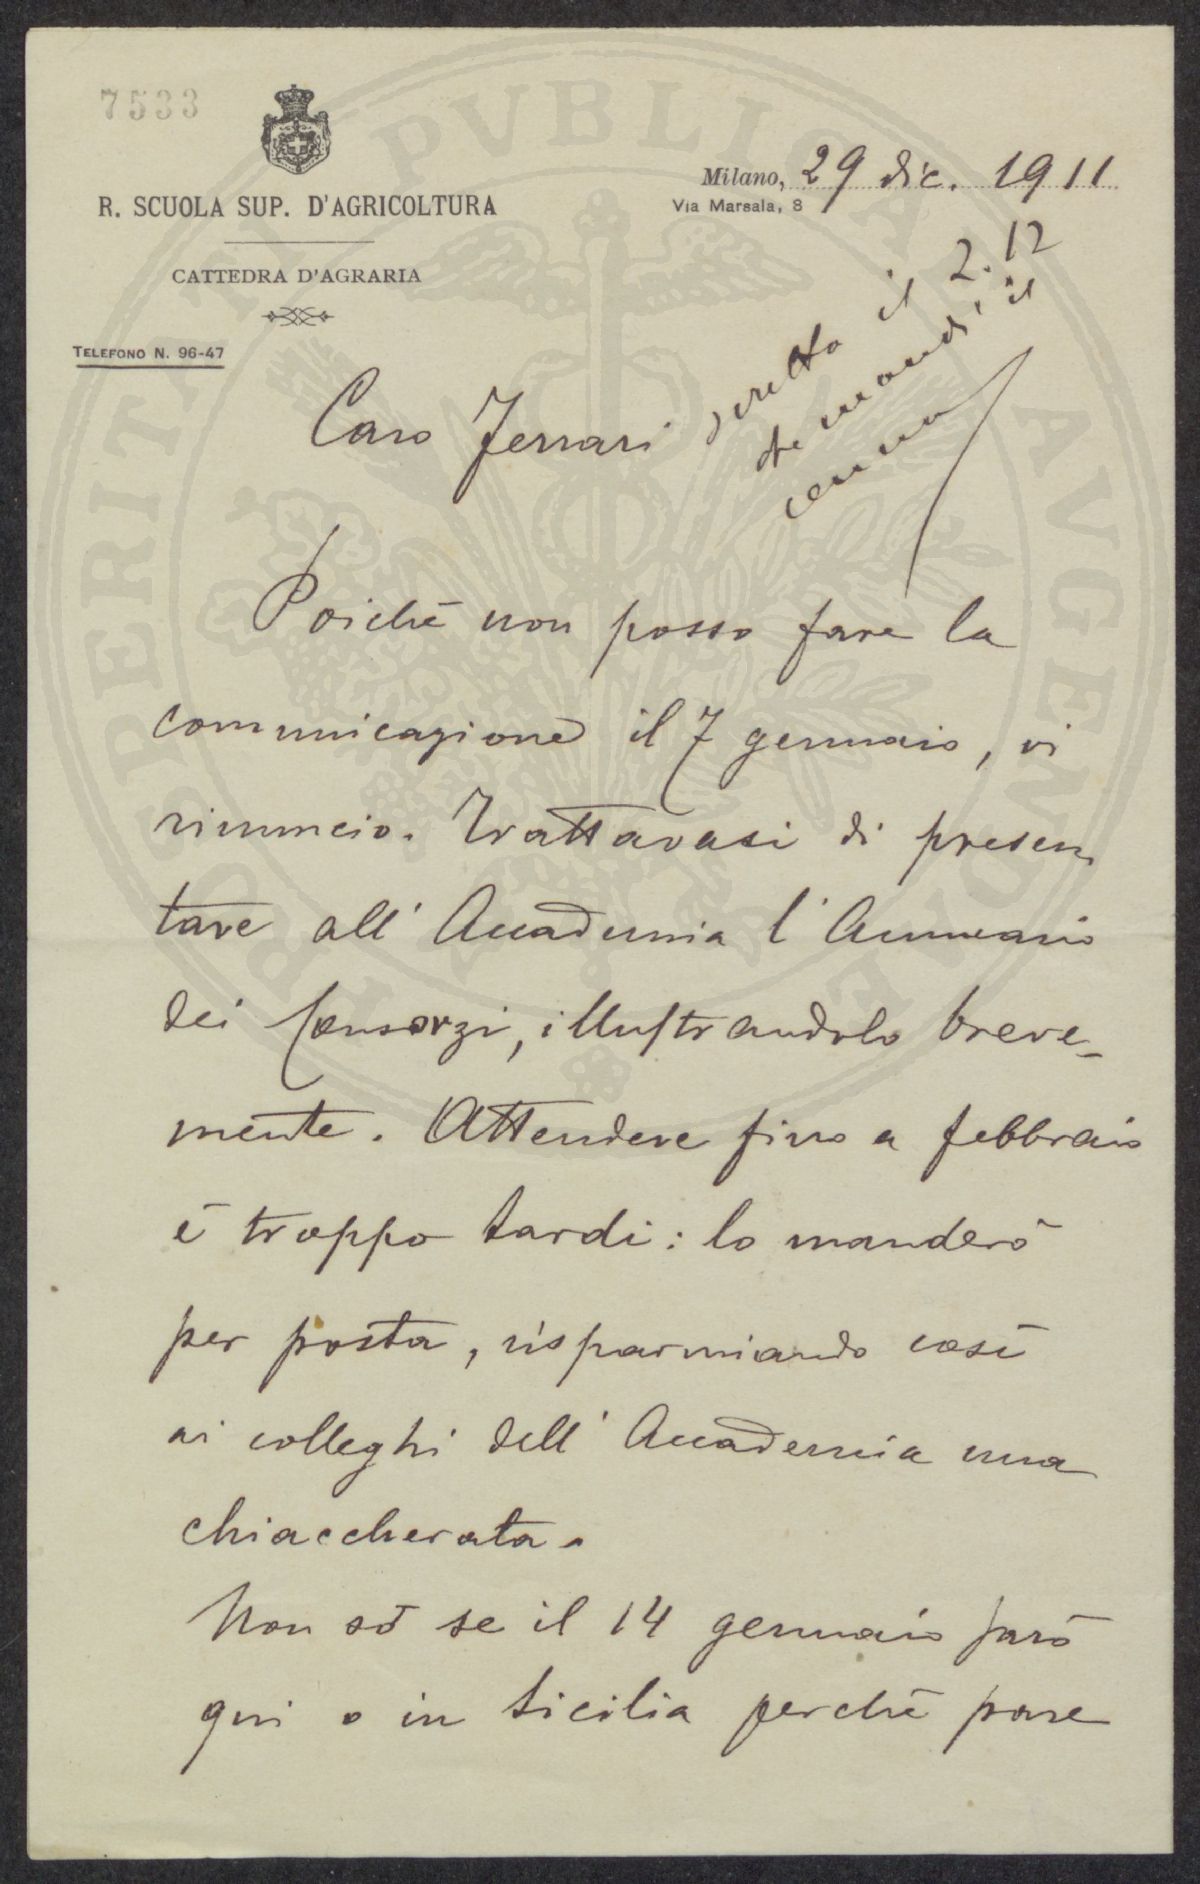 7533
R. SCUOLA SUP. D'AGRICOLTURA
CATTEDRA D'AGRARIA
TELEFONO N. 96-47
Milano, 29 dic. 1911
Via Marsala, 8
scritto il 2.12
che mandi il
cenno
Caro Ferrari
Poichè non posso fare la
comunicazione il 7 gennaio, vi
rinuncio. Trattavasi di presen
tare all'Accademia l'Annuario
dei Consorzi, illustrandolo breve-
mente. Attendere fino a febbraio
è troppo tardi: lo manderò
per posta, risparmiando così
ai colleghi dell'Accademia una
chiaccherata.
Non sò se il 14 gennaio sarò
qui o in Sicilia perchè pare
PROSPERITATI PVBLICAE AVGENDAE